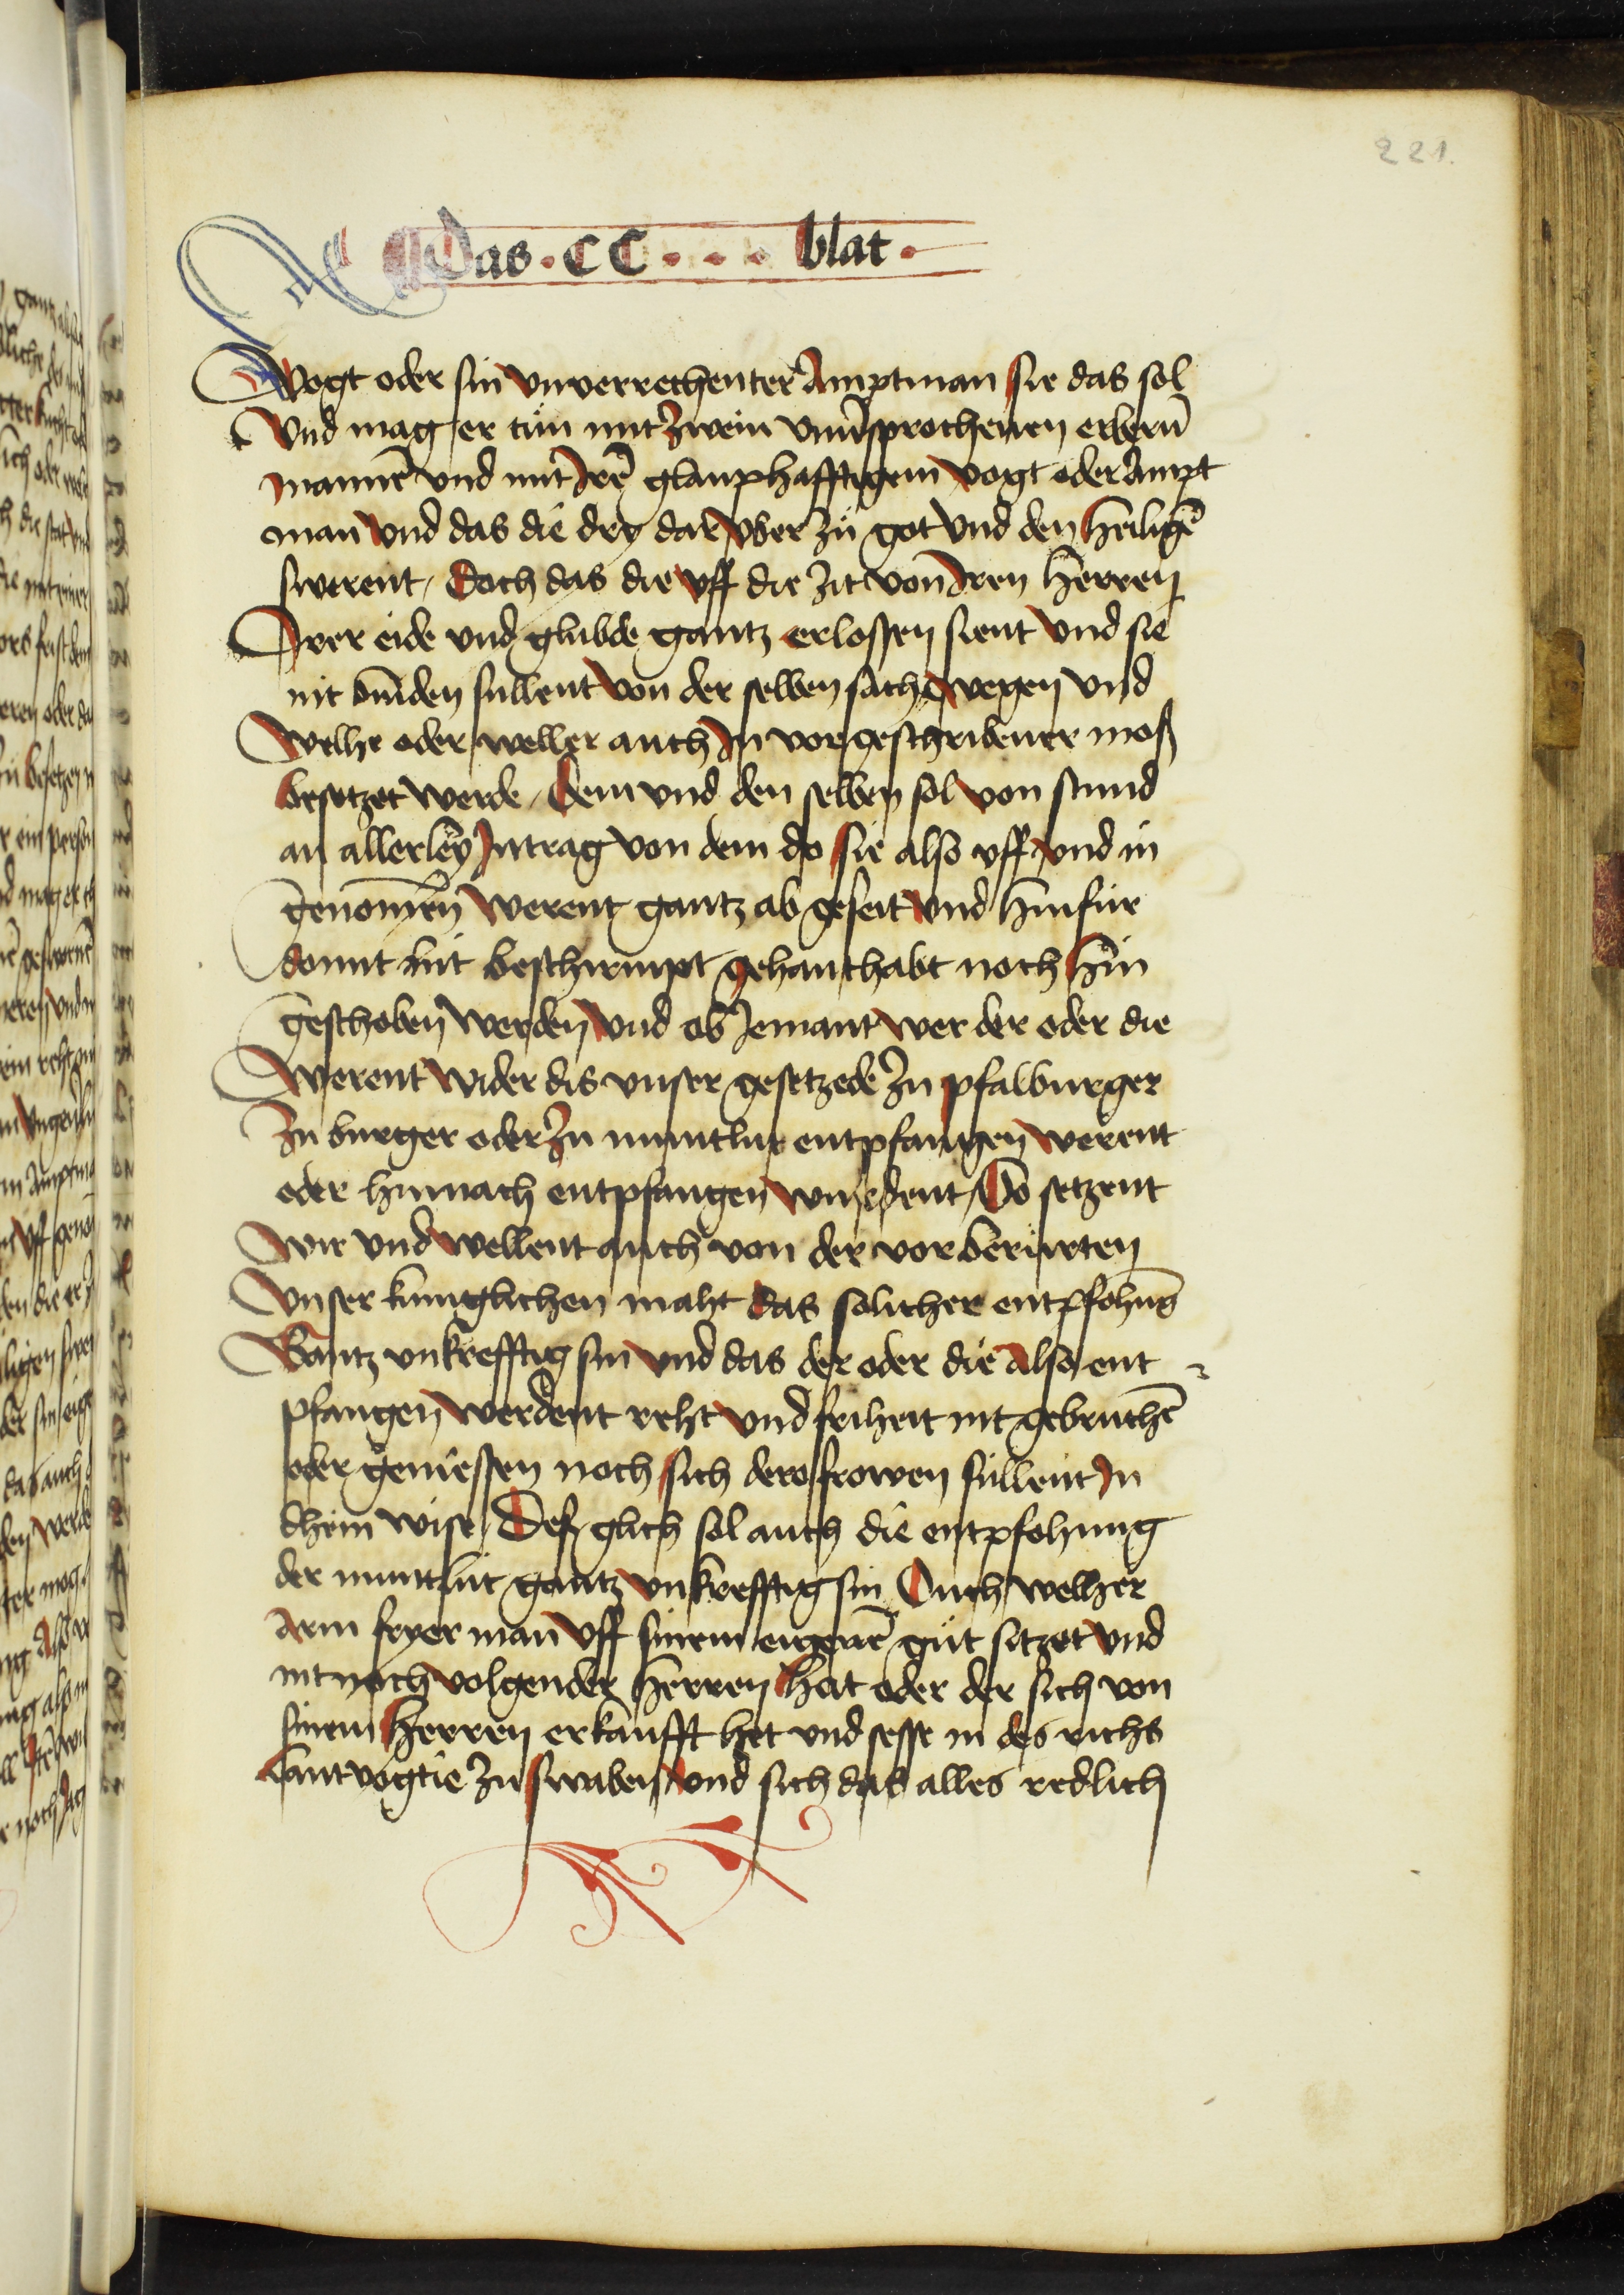 221.
Das . CC . . . blat .
Vogt oder sin vnverrechenter Amptman sie das sol
Vnd mag er tün mit zwein vnūsprochenen erbern̄
mannē vnd mit Irē glauphafftigem vogt oder Ampt
man vnd das die dry dar vber zü got vnd den heiligē
swerent / Doch das die vff die zit von Iren herren
Irer eide vnd glubde gantz erlossen sient vnd sie
nit binden sullent von der selben sach wegen vnd
welhe oder weller auch In vorgeschribener moß
besetzet werde / Dem vnd den selben sol von stund
an allerley Intrag von dem do sie also vff vnd in
genom̄en werent gantz ab geseit vnd hinfür
domit nit beschirmpt gehanthabt noch hin
geschoben werden vnd ob Jemant wer der oder die
werent wider dis vnser gesetzede zu pfalburger
zu burger oder zu muntlut entpfangen werent
oder hinnach entpfangen wurdent / Do setzent
wir vnd wellent auch von der vor berürten
vnser kuniglichen maht das solicher entpfohūg
Gantz vnkrefftig sin vnd das der oder die also ent
pfangen werdent reht vnd friheit nit gebruchē
oder geniessen noch sich dero frowen süllent In
dhein wise / Deß glich sol auch die entpfohung
der muntlüt gantz vnkrefftig sin Ouch welher
arm fryer man vff sinem eigenē güt sitzet vnd
nit noch volgender herren hat oder der sich von
sinem herren erkaufft het vnd sesse in des richs
lantvogtie zu swaben vnd sich das alles redlich